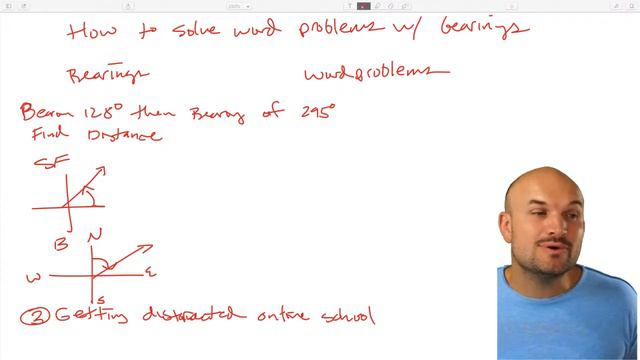 How to solve word problems w/ bearings
Bearings word problems
Bearing 128° then Bearing of 295°
Find Distance
SF
B N
W E
S
2 Getting distracted online school